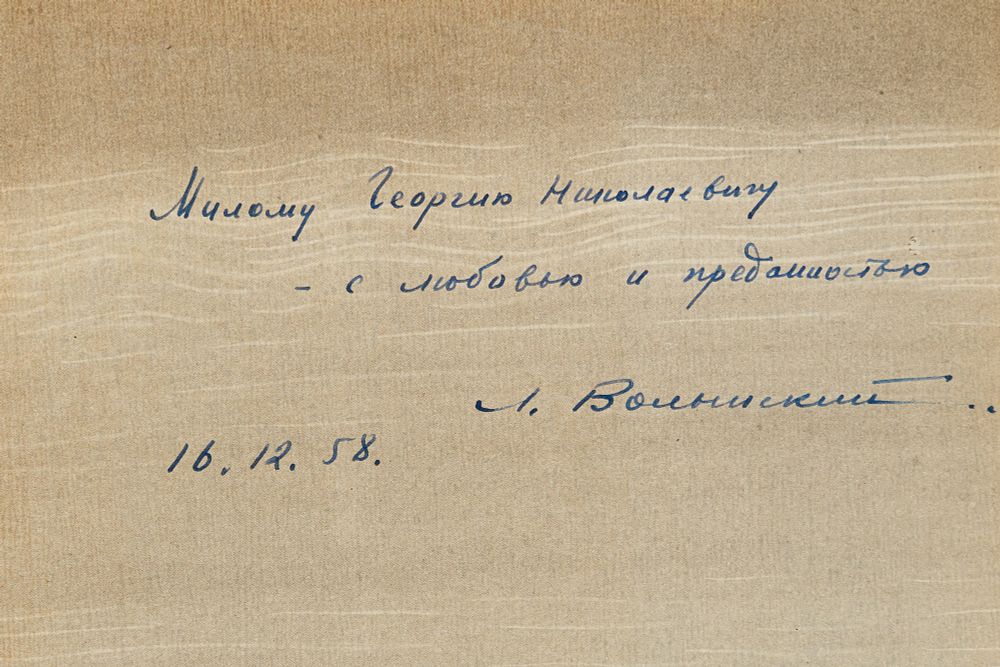 Милому Георгию Николаевичу
- с любовью и преданностью
Л. Волынский..
16.12.58.